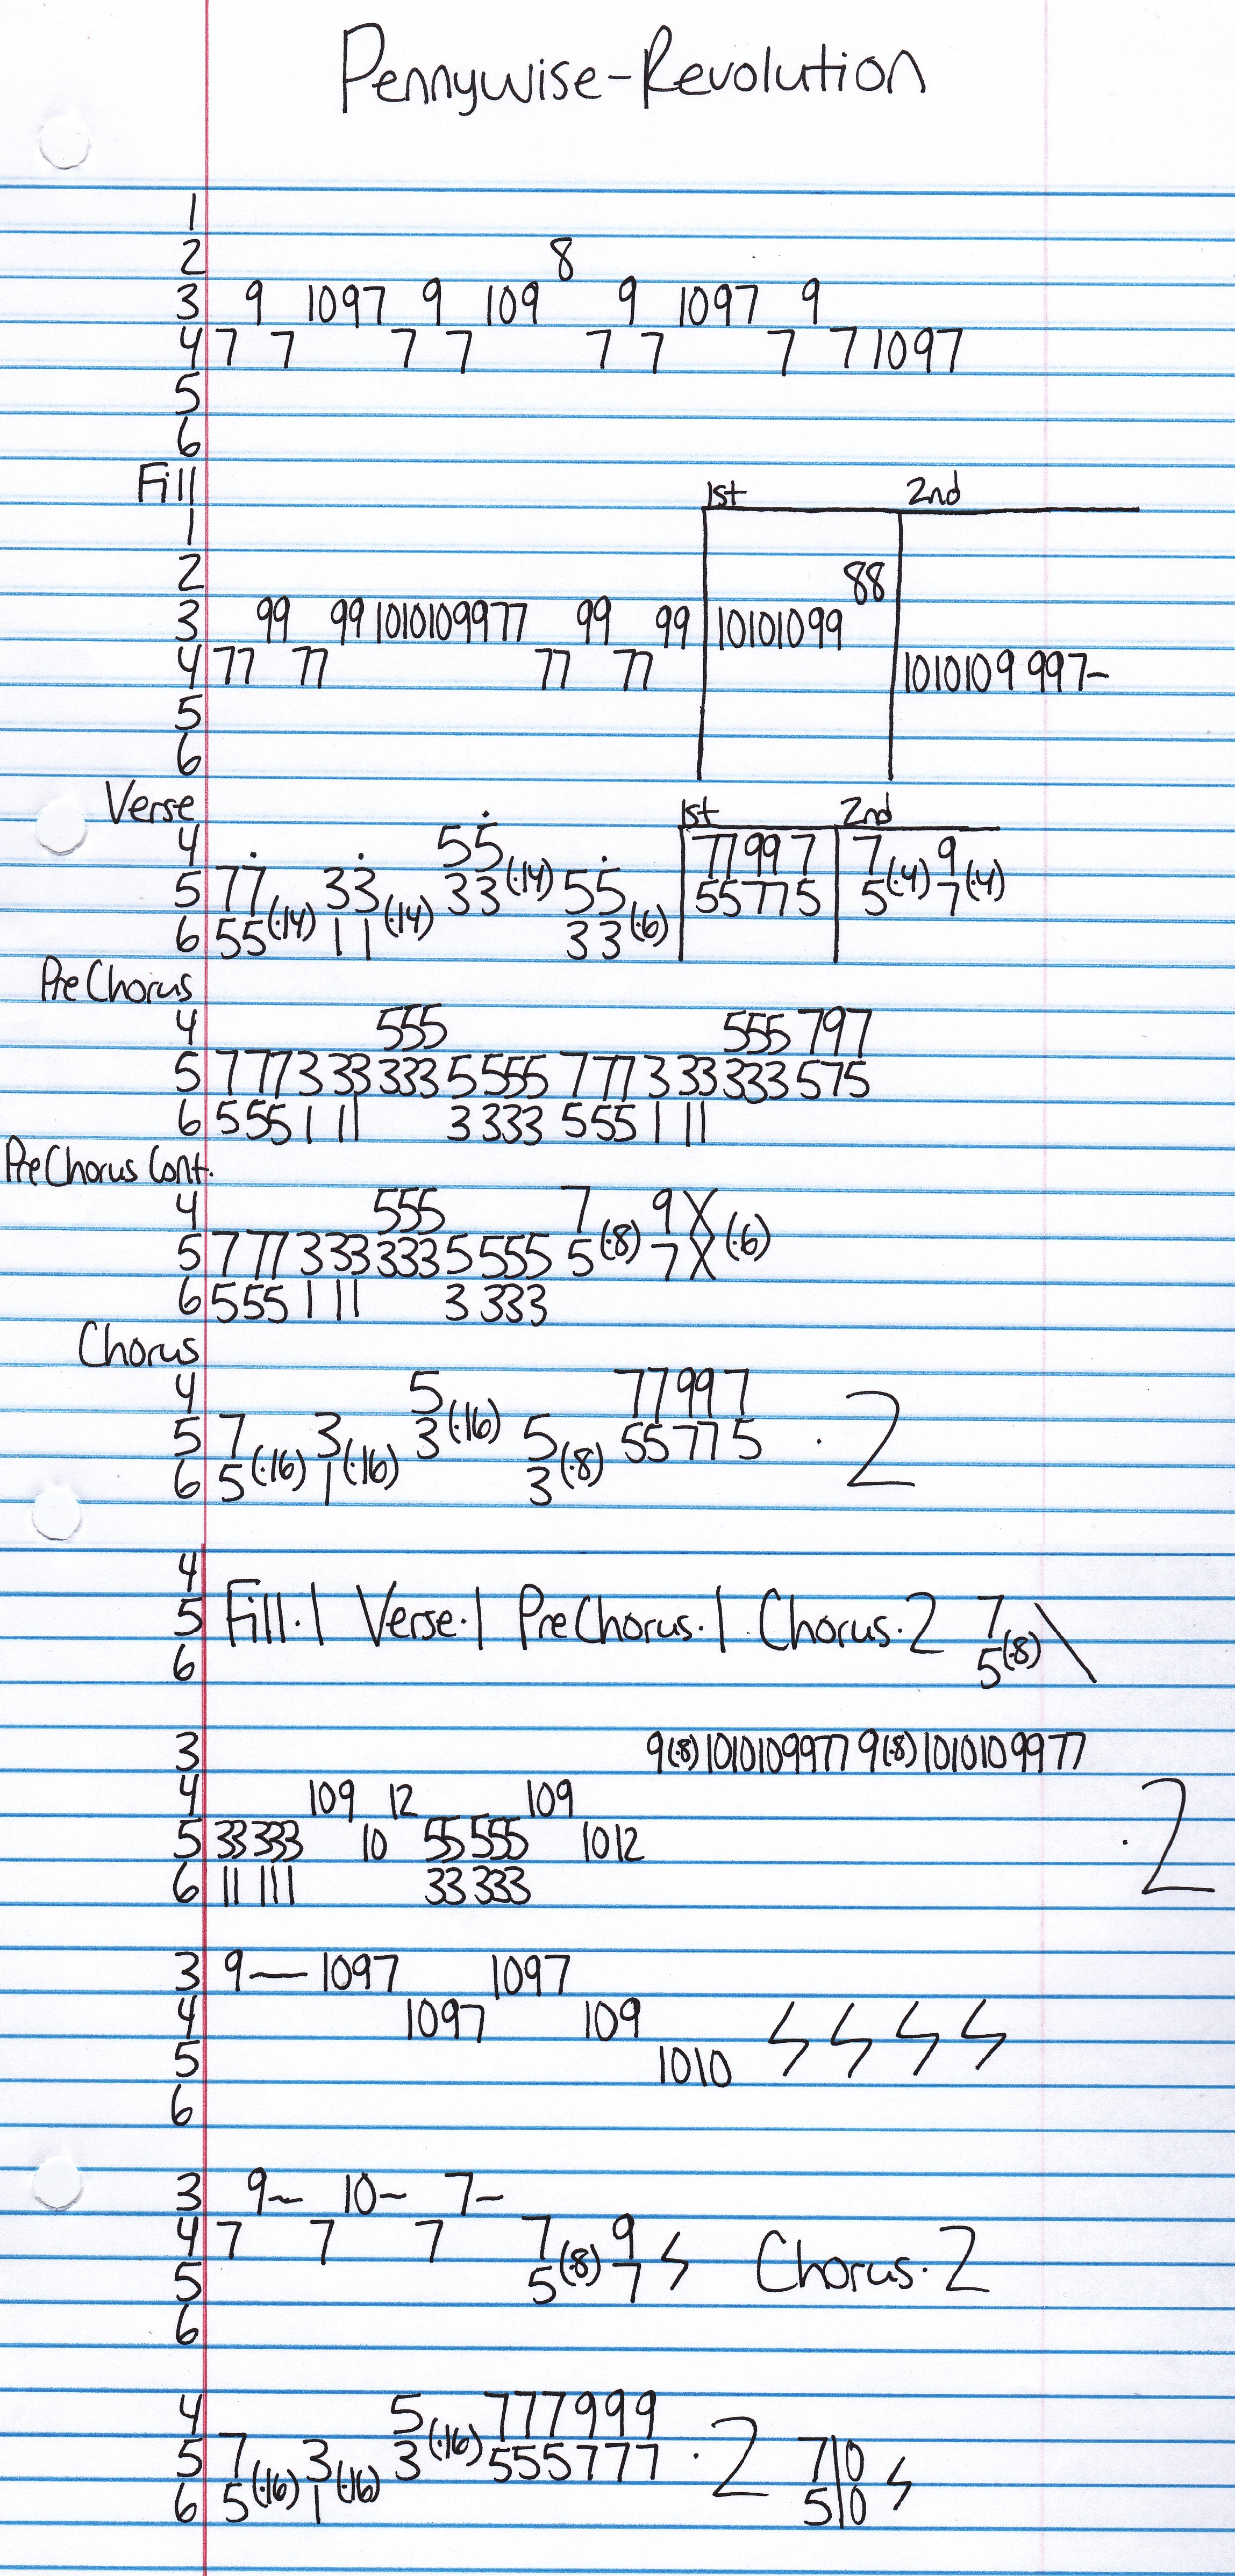 Pennywise-Revolution
1
2 8
3 9 1097 9 109 9 1097 9
4 7 7 7 7 7 7 7 7 1097
5
6
Fill 1st 2nd
1
2 88
3 99 99 1010109977 99 99 10101099
4 77 77 77 77 1010109 997-
5
6
Verse 1st 2nd
4 55 77 99 7 7 9
5 77 33 33 (·14) 55 55 77 5 5 (·4) 7 (·4)
6 55 (·14) 11 (·14) 33 (·6)
PreChorus
4 555 555 797
5 777 3 33 333 5 555 777 3 33 333 575
6 555 1 11 3 333 555 1 11
PreChorus Cont.
4 555 7 9 X
5 777 333 333 5 555 5 (·8) 7 X (·6)
6 555 1 11 3 333
Chorus
4 5 77997
5 7 3 3 (·16) 5 55775 · 2
6 5 (·16) 1 (·16) 3 (·8)
4
5 Fill·1 Verse·1 PreChorus·1 Chorus·2 7 \
6 5 (·8)
3 9(·8)1010109977 9(·8)1010109977
4 109 12 109
5 33 333 10 55 555 1012 · 2
6 11 111 33 333
3 9— 1097 1097
4 1097 109
5 1010
6
3 9~ 10~ 7-
4 7 7 7 7 9
5 5 (·8) 7 Chorus·2
6
4 5 777999
5 7 3 3 (·16) 555777 · 2 710
6 5 (·16) 1 (·16) 510